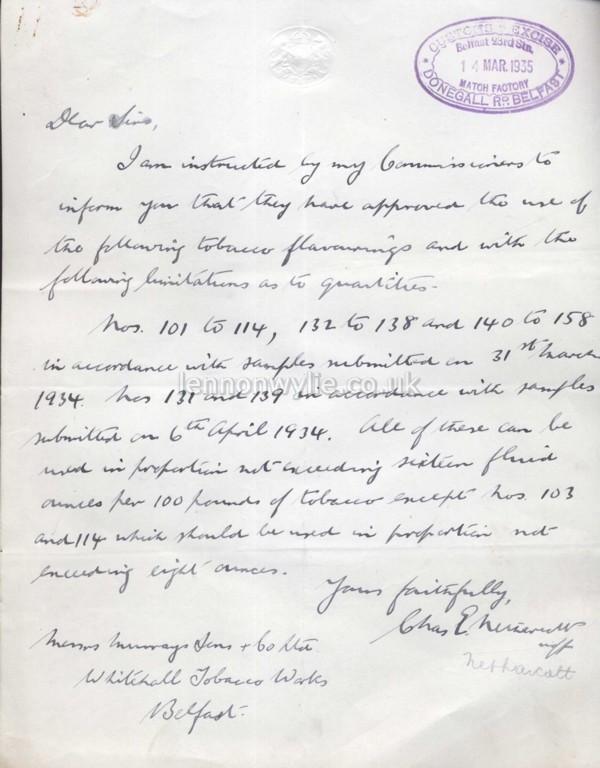 CUSTOMS & EXCISE
Belfast 23rd Stn.
14 MAR. 1935
MATCH FACTORY
DONEGALL RD. BELFAST
Dear Sirs,
I am instructed by my Commissioners to
inform you that they have approved the use of
the following tobacco flavourings and with the
following limitations as to quantities-
Nos. 101 to 114, 132 to 138 and 140 to 158
in accordance with samples submitted on 31st March
lennonwylie.co.uk
1934. Nos 131 and 139 in accordance with samples
submitted on 6th April 1934. All of these can be
used in proportion not exceeding sixteen fluid
ounces per 100 pounds of tobacco except Nos. 103
and 114 which should be used in proportion not
exceeding eight ounces.
Yours faithfully,
Chas E.
Messrs Murrays Sons & Co Ltd.
Whitehall Tobacco Works
Belfast.